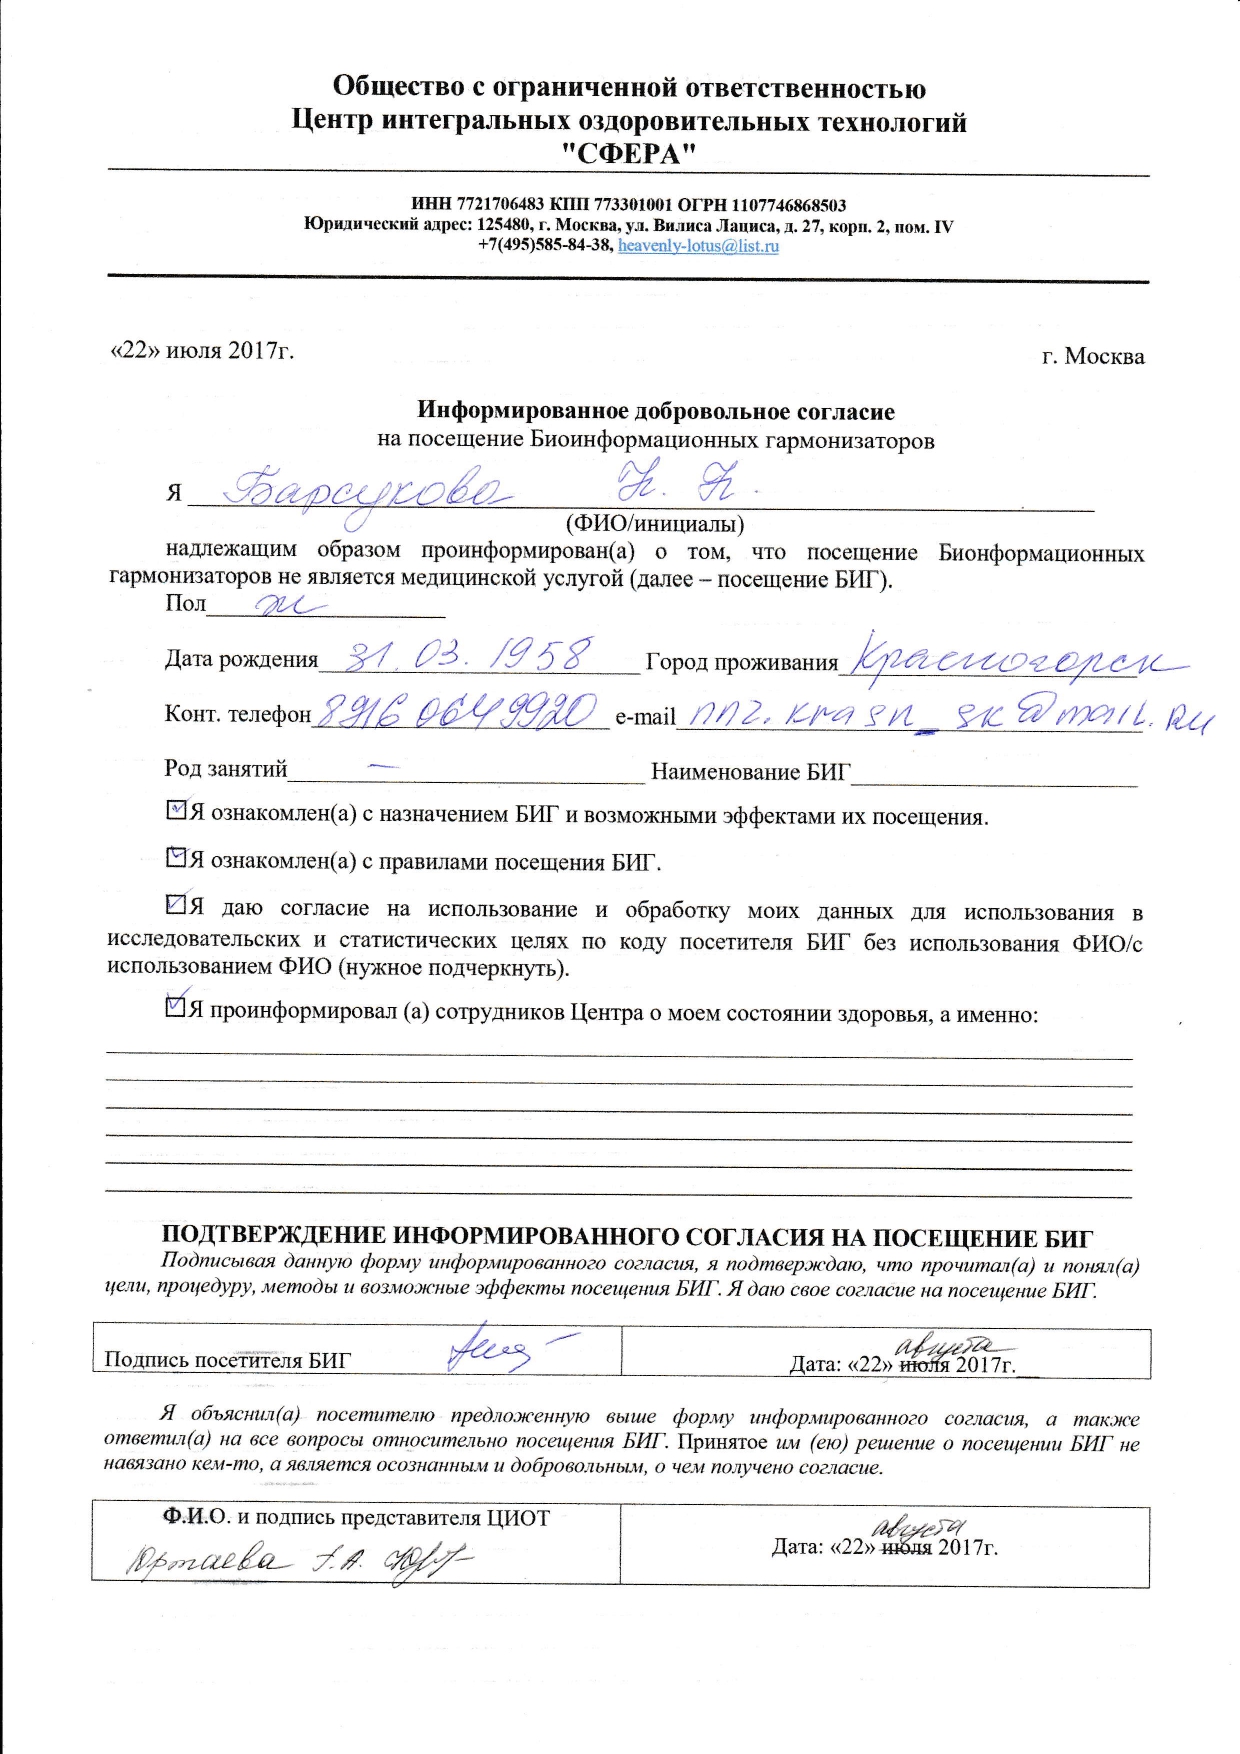 Общество с ограниченной ответственностью
Центр интегральных оздоровительных технологий
"СФЕРА"
ИНН 7721706483 КПП 773301001 ОГРН 1107746868503
Юридический адрес: 125480, г. Москва, ул. Вилиса Лациса, д. 27, корп. 2, пом. IV
+7(495)585-84-38, heavenly-lotus@list.ru
«22» июля 2017г. г. Москва
Информированное добровольное согласие
на посещение Биоинформационных гармонизаторов
Я Барсукова Н. Н.
(ФИО/инициалы)
надлежащим образом проинформирован(а) о том, что посещение Бионформационных
гармонизаторов не является медицинской услугой (далее – посещение БИГ).
Пол ж
Дата рождения 31.03.1958 Город проживания Красногорск
Конт. телефон 89160649920 e-mail
Род занятий — Наименование БИГ
Я ознакомлен(а) с назначением БИГ и возможными эффектами их посещения.
Я ознакомлен(а) с правилами посещения БИГ.
Я даю согласие на использование и обработку моих данных для использования в
исследовательских и статистических целях по коду посетителя БИГ без использования ФИО/с
использованием ФИО (нужное подчеркнуть).
Я проинформировал (а) сотрудников Центра о моем состоянии здоровья, а именно:
ПОДТВЕРЖДЕНИЕ ИНФОРМИРОВАННОГО СОГЛАСИЯ НА ПОСЕЩЕНИЕ БИГ
Подписывая данную форму информированного согласия, я подтверждаю, что прочитал(а) и понял(а)
цели, процедуру, методы и возможные эффекты посещения БИГ. Я даю свое согласие на посещение БИГ.
августа
Подпись посетителя БИГ Дата: «22» июля 2017г.
Я объяснил(а) посетителю предложенную выше форму информированного согласия, а также
ответил(а) на все вопросы относительно посещения БИГ. Принятое им (ею) решение о посещении БИГ не
навязано кем-то, а является осознанным и добровольным, о чем получено согласие.
Ф.И.О. и подпись представителя ЦИОТ
августа
Дата: «22» июля 2017г.
Юртаева Г.А.